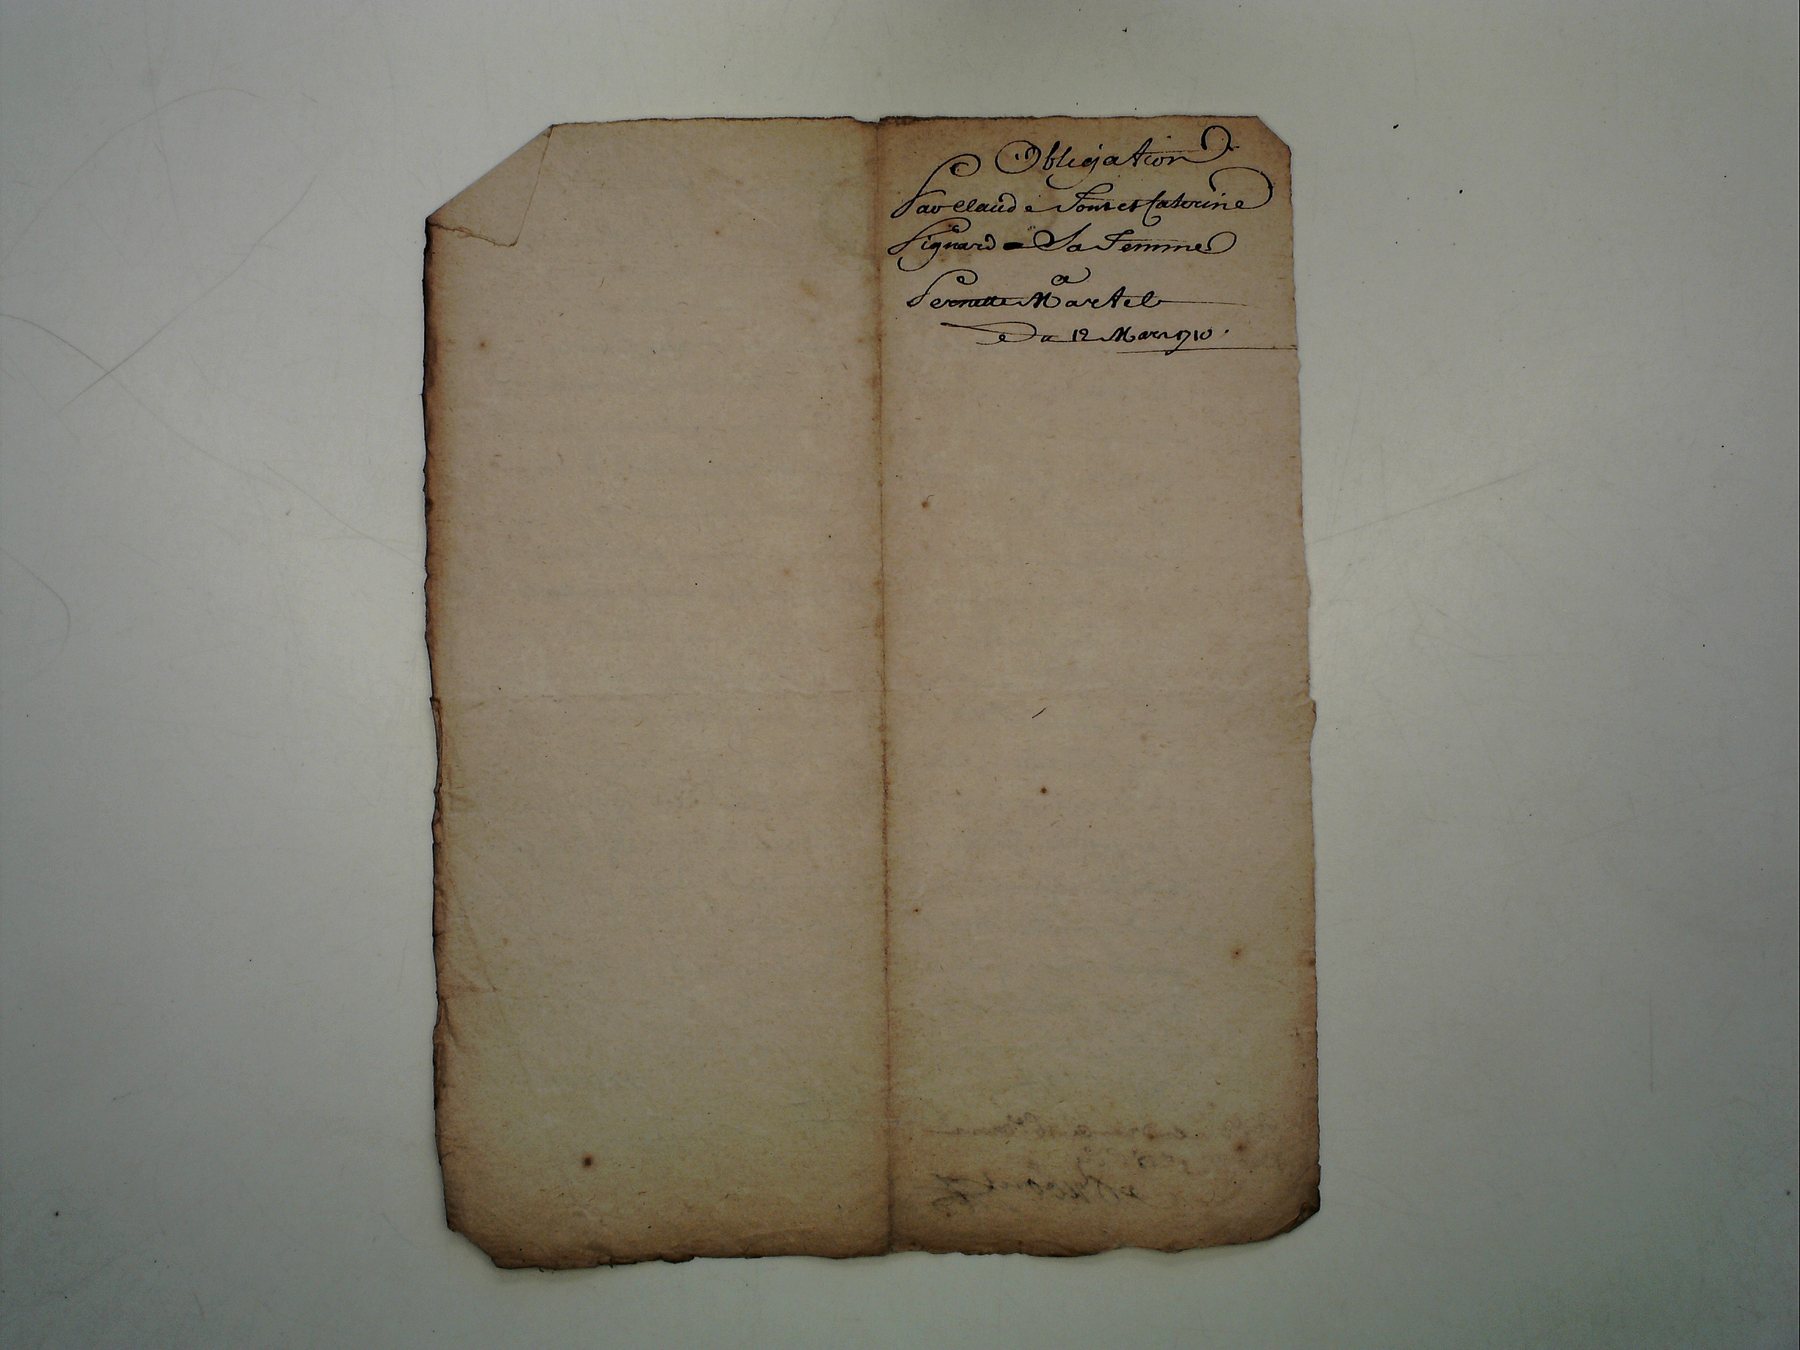 Obligation
Par Claude Fonset Caterine
Pignard Sa Femme
a
Pernette Martel
Du 12 Mars 1710